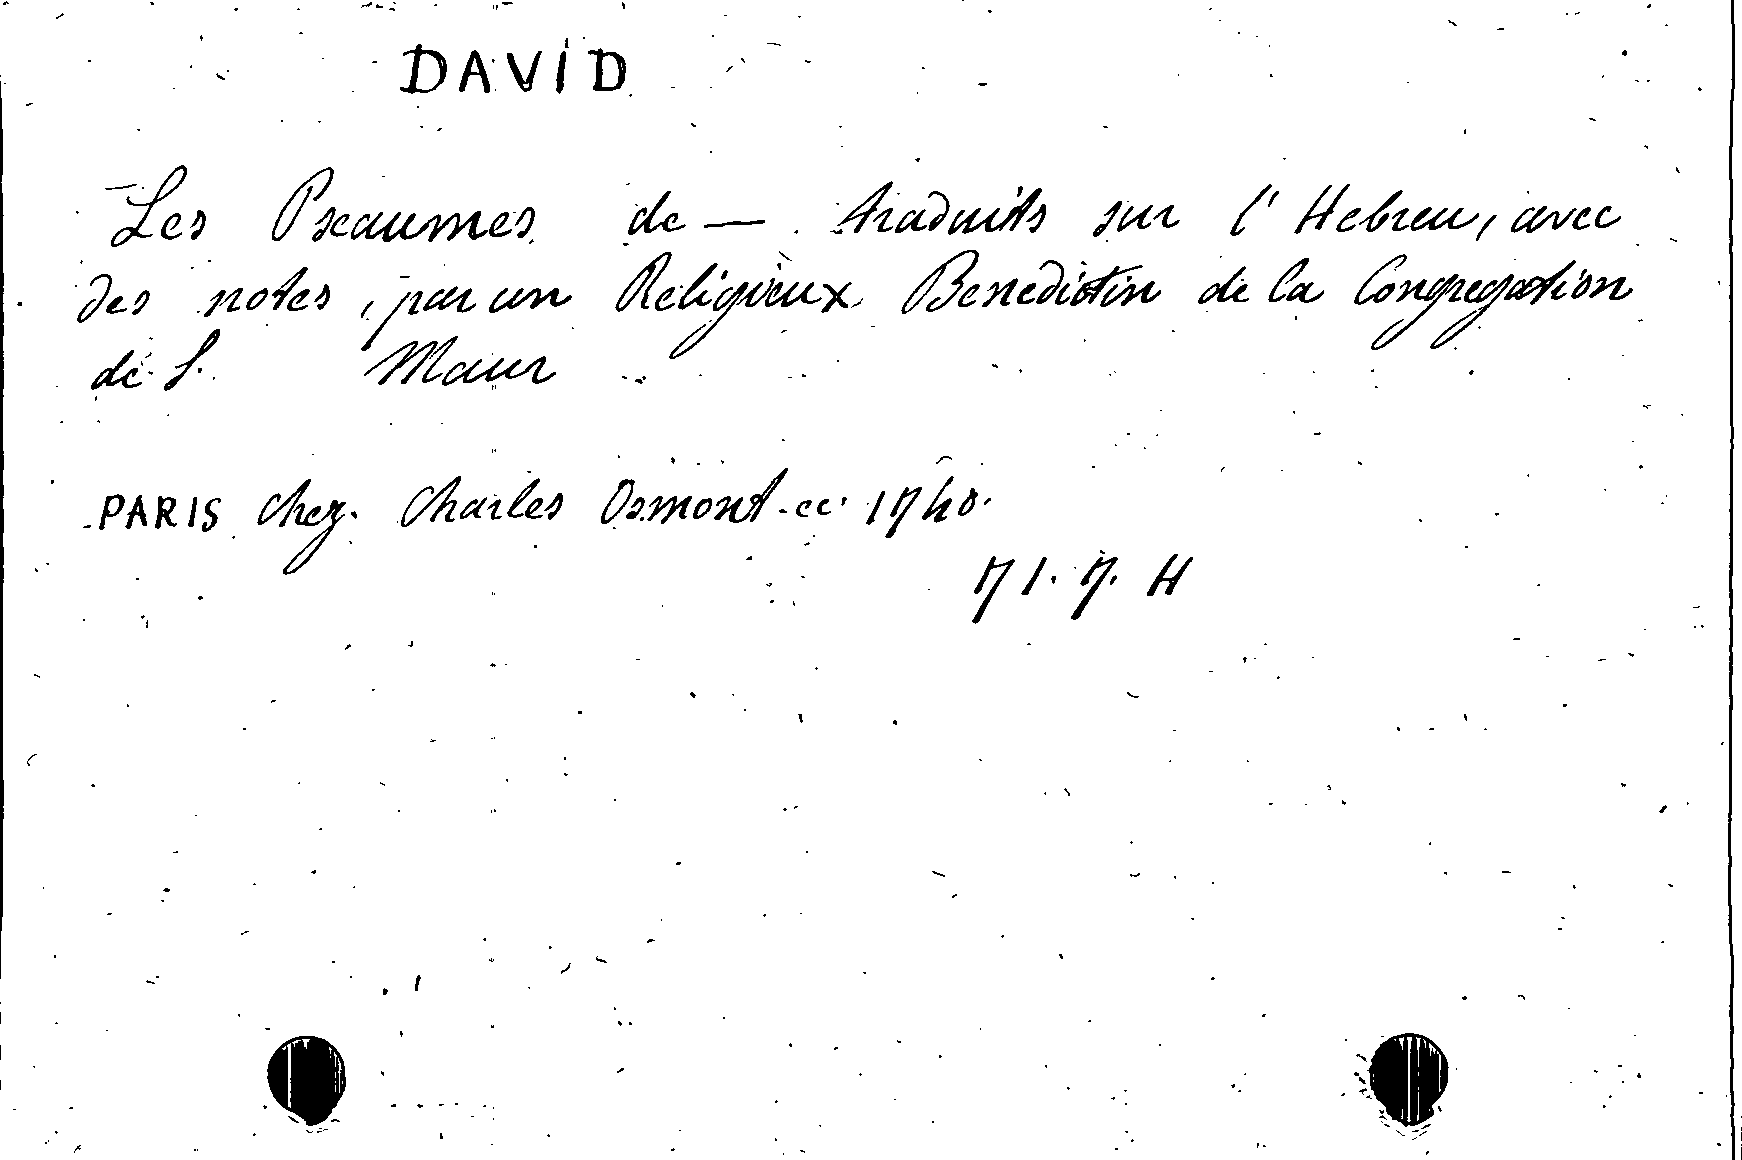 DAVID
Les Pseaumes de — traduits sur l'Hebreu, avec
des notes, par un Religieux Benedictin de la Congregation
de S. Maur
PARIS chez Charles Osmont. cc. 1740.
71. 7. H